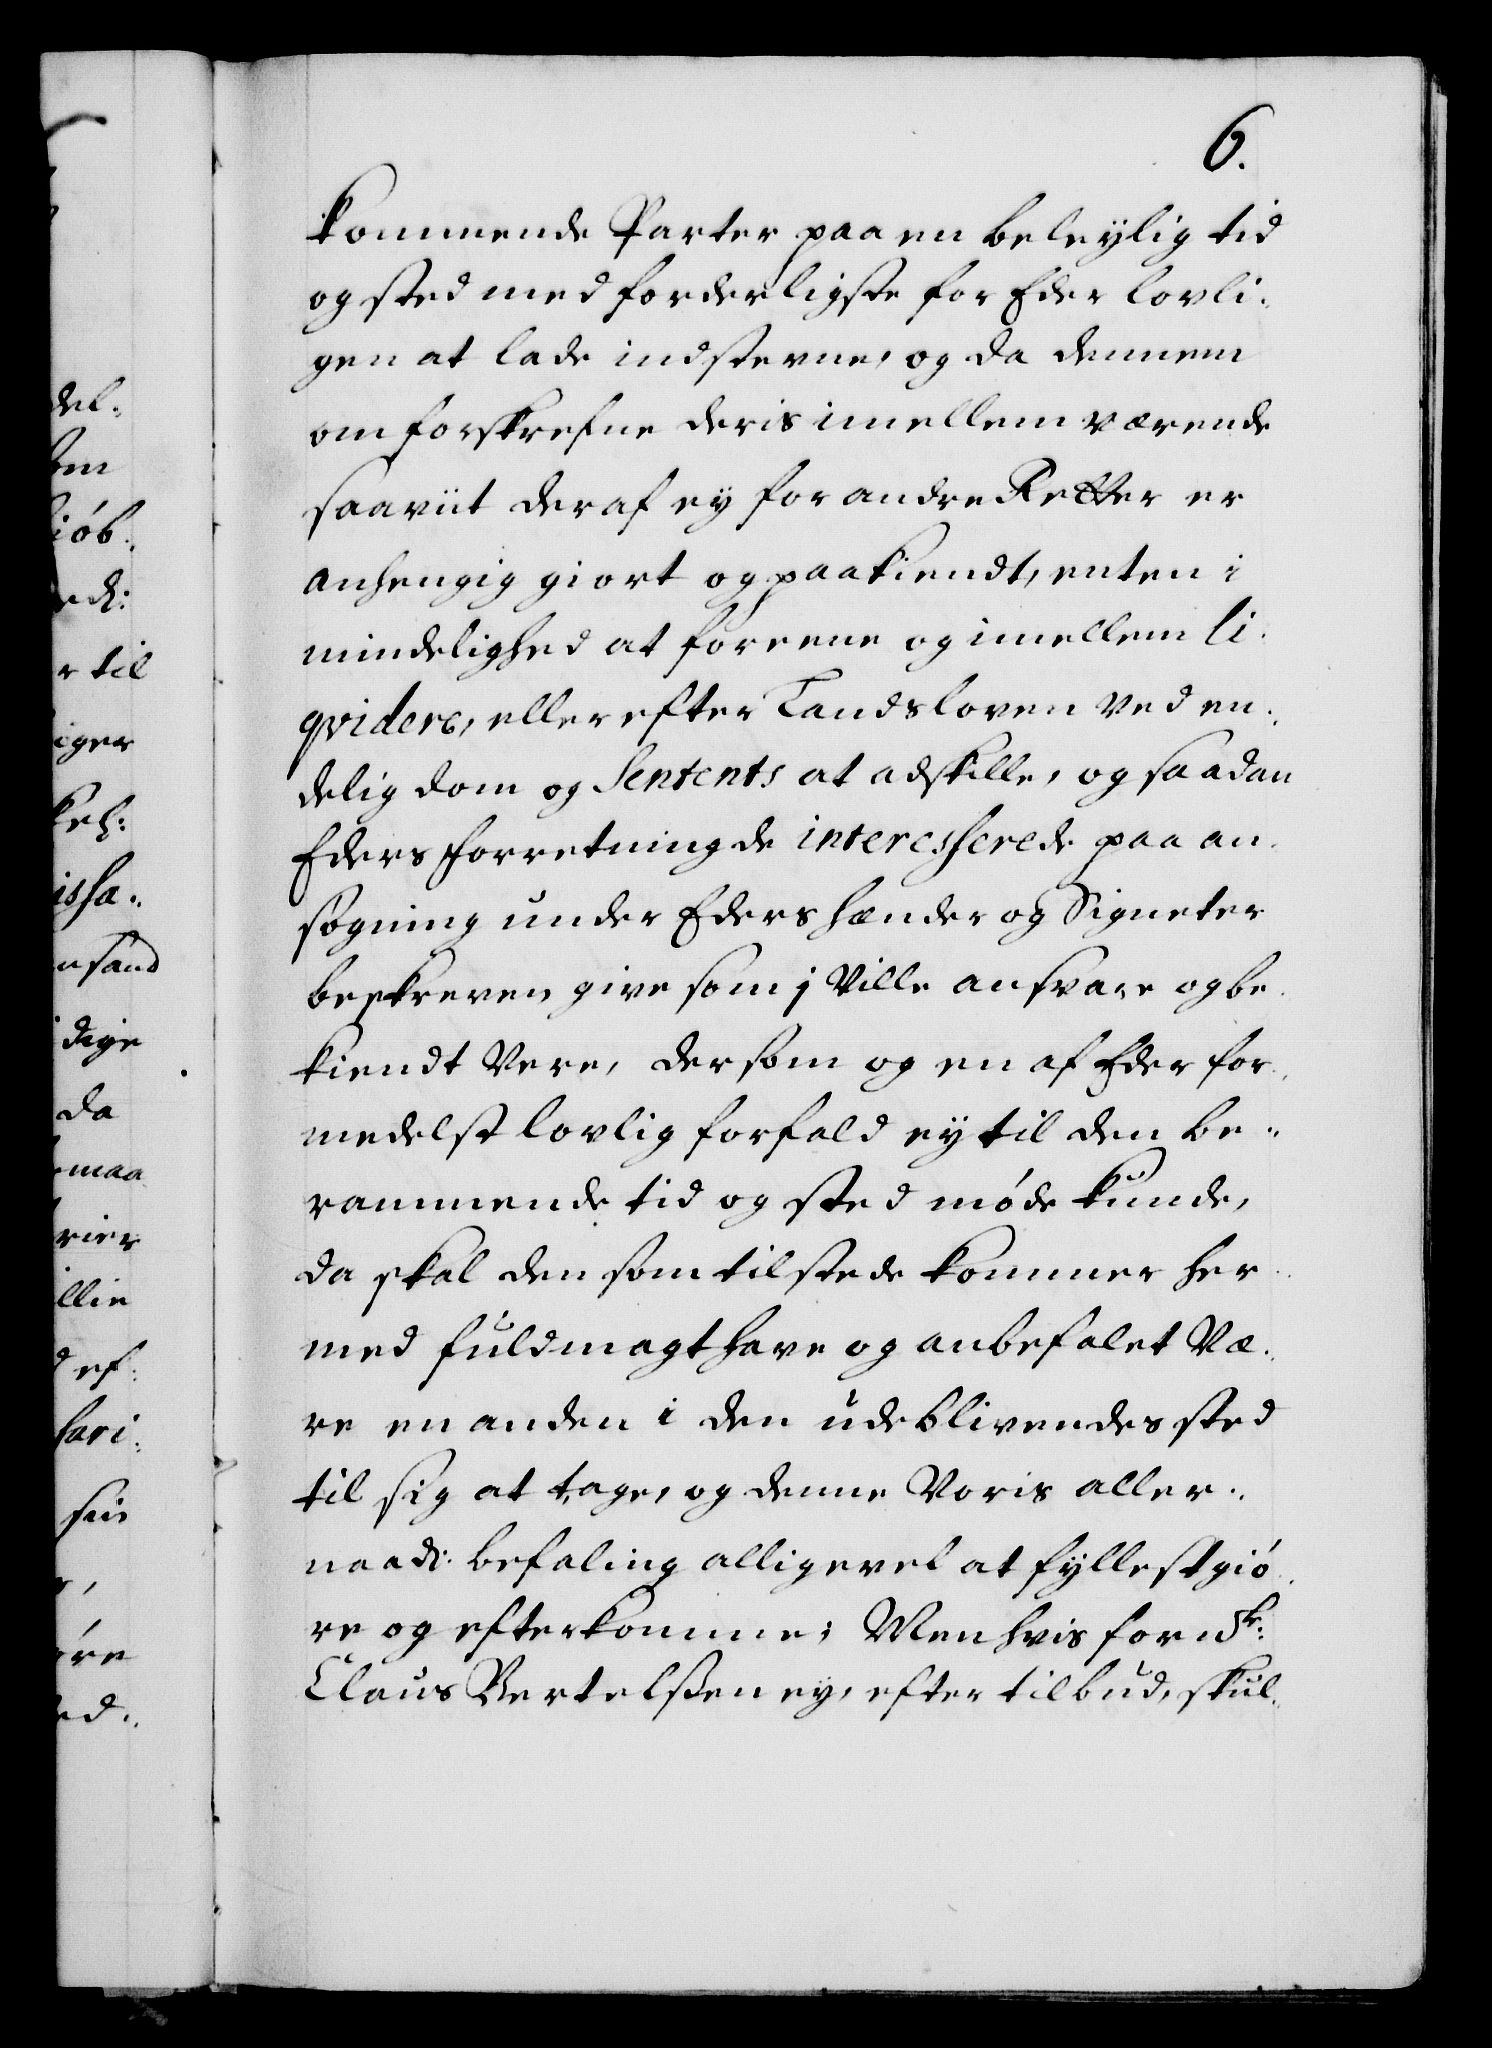 6.
kommende Parter paa en beleylig tid
og sted med forderligste for Eder lovli-
gen at lade indstevne, og da dennem
om forskrefne deris imellem værende
saaviit deraf ey for andre Retter er
anhengig giort og paakiendt, enten i
mindelighed at foreene og imellem li-
qvidere, eller efter Landsloven ved en-
delig dom og Sententz at adskille, og saadan
Eders forretning de interesserede paa an-
søgning under Eders hænder og Signeter
beskreven give som j ville ansvare og be-
kiendt vere, dersom og en af Eder for-
medelst lovlig forfald ey til den be-
rammende tid og sted møde kunde,
da skal den som tilstede kommer her-
med fuldmagt have og anbefalet væ-
re en anden i den udeblivendes sted
til sig at tage, og denne Voris aller-
naadi: befaling alligevel at fyllestgiø-
re og efterkomme; Men hvis for: sk:
Claus Bertelsßen ey, efter tilbud, skul-